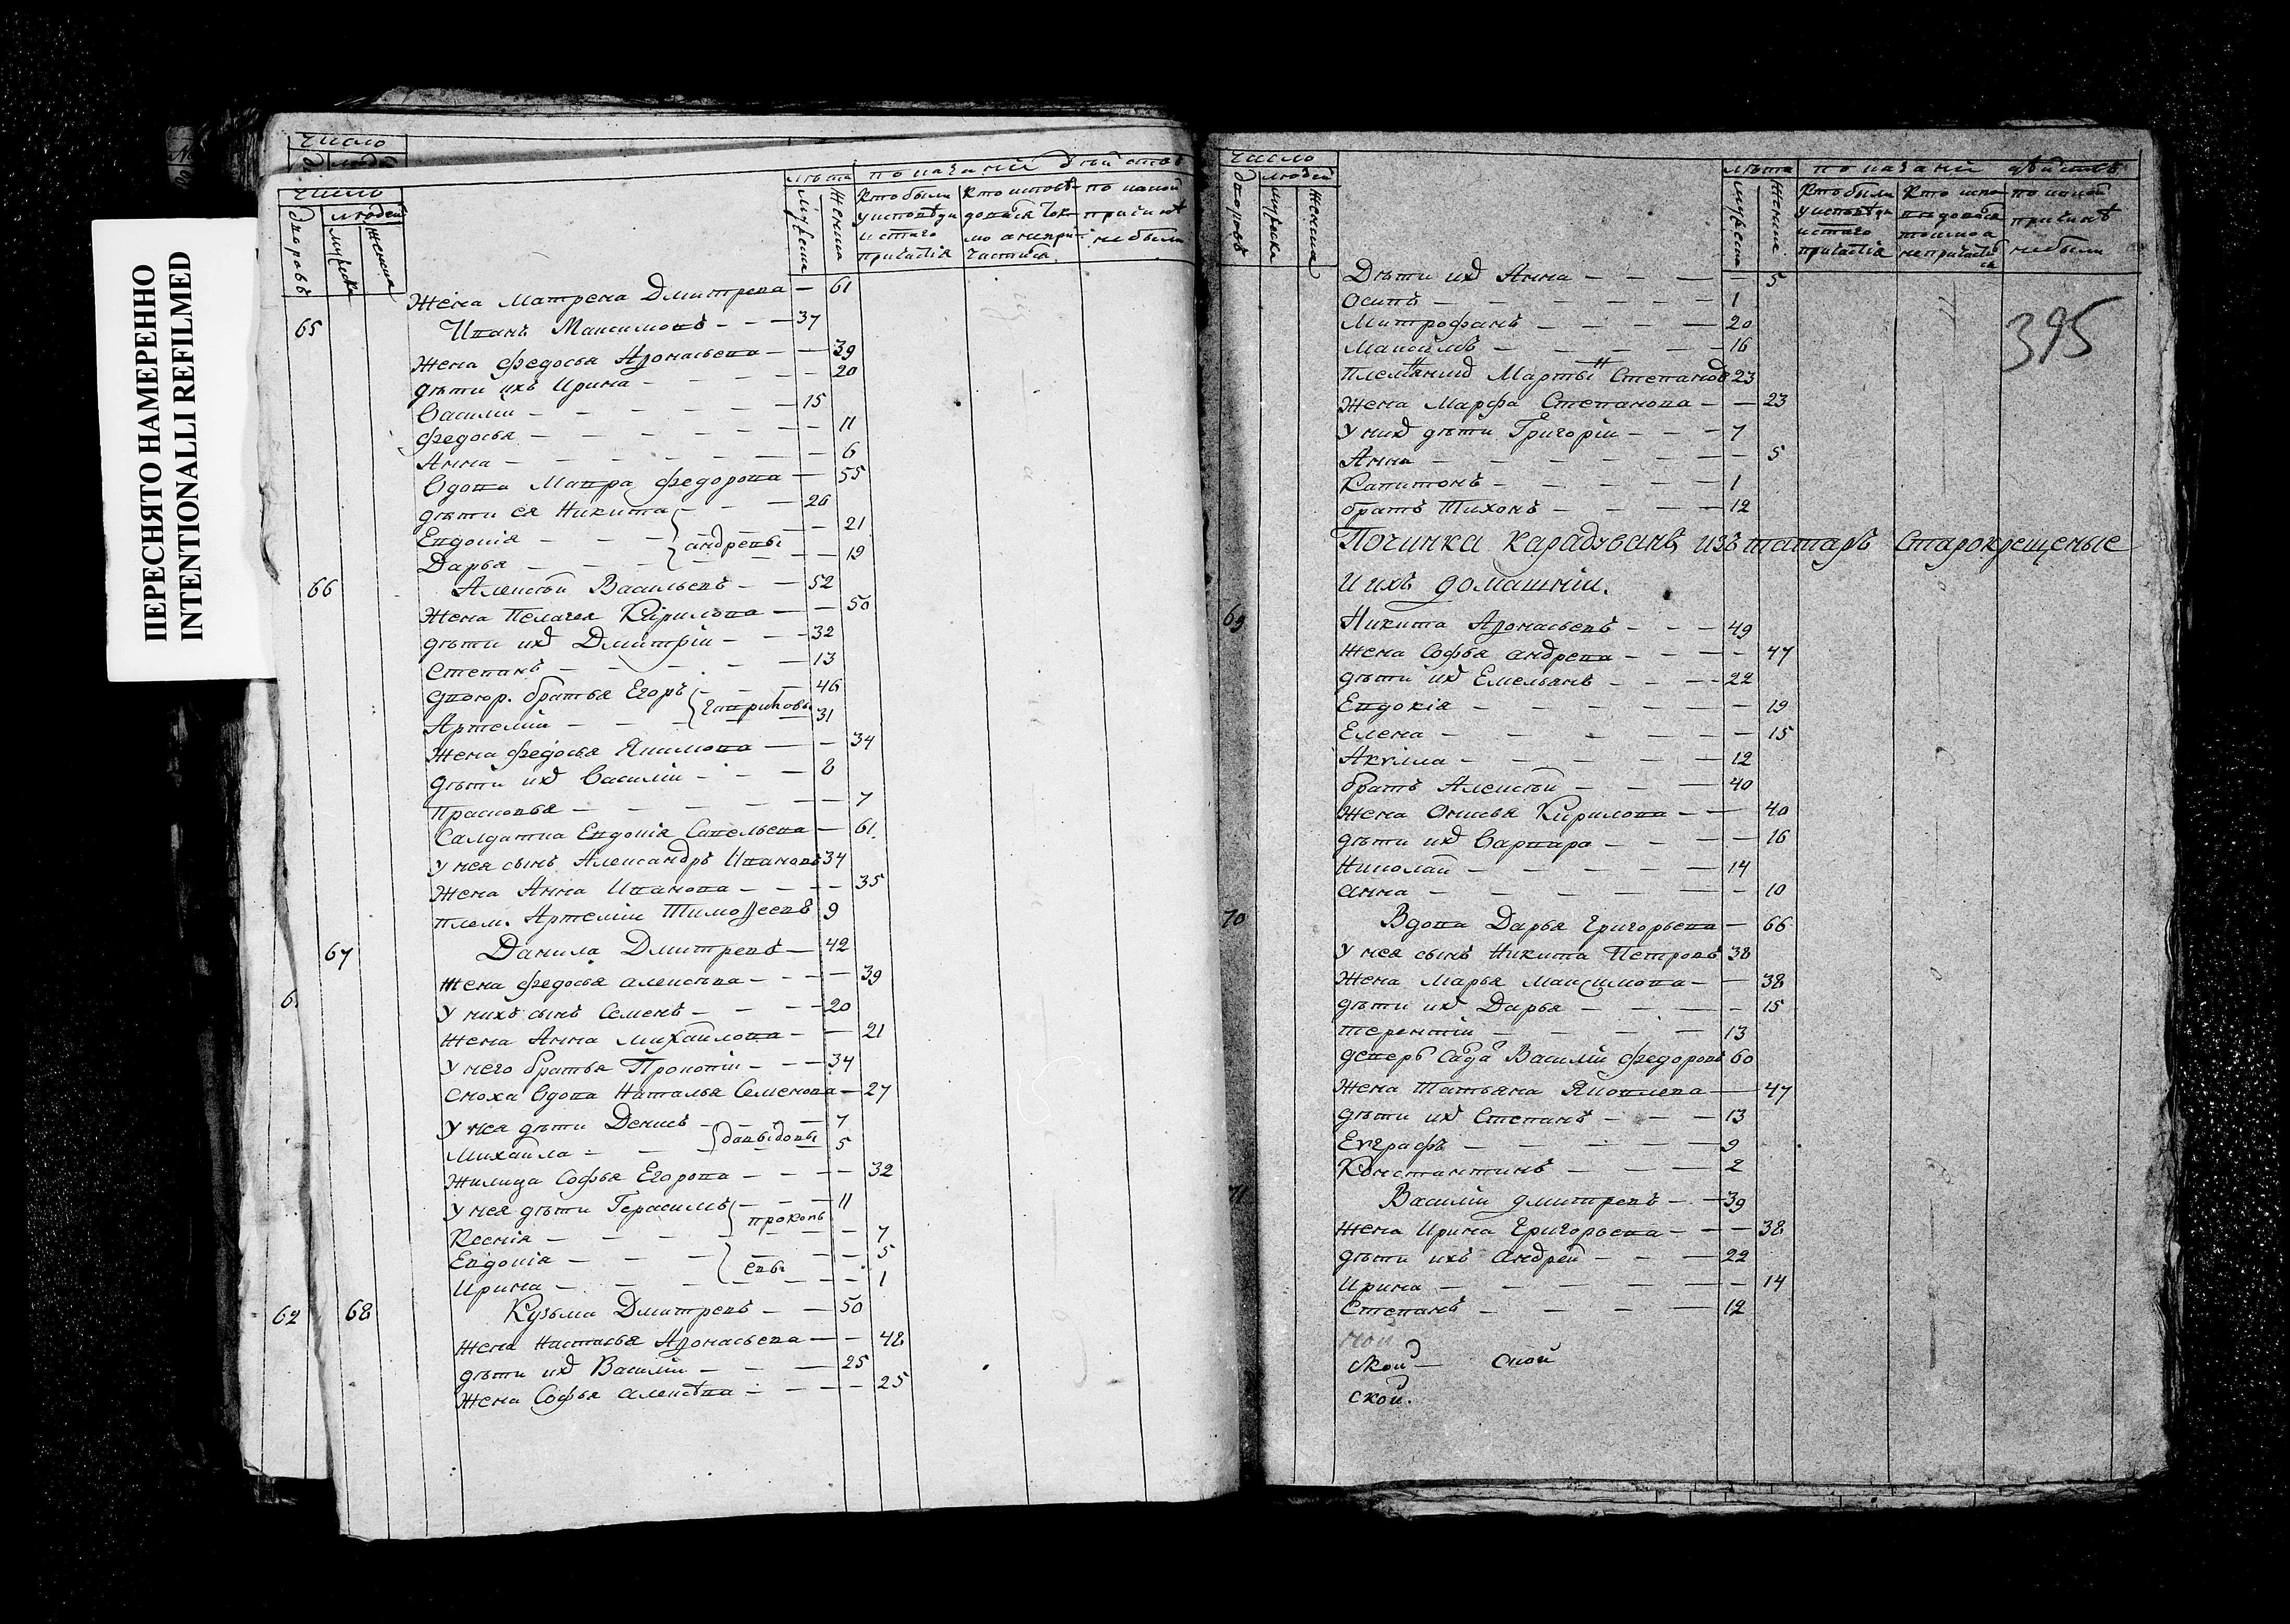 ПЕРЕСНЯТО НАМЕРЕННО
INTENTIONALLI REFILMED
число
число
людей
дворовъ
мужеска
женска
лѣта
мужеска
женска
показаніи дѣйствъ
кто были у исповѣди и стаго причастія
кто исповѣдовался токмо а не причастился
по какой причинѣ не были
Жена Матрена Дмитрева — 61
65 Иванъ Максимовъ — 37
жена Федосья Афонасьева — 39
дѣти ихъ Ирина — 20
Василіи — 15
Федосья — 11
Анна — 6
Вдова Мавра Федорова — 55
дѣти ея Никита — 26
Евдокія — андревы — 21
Дарья — 19
66 Алексѣй Васильевъ — 52
жена Пелагея Кирилова — 50
дѣти ихъ Дмитріи — 32
Степанъ — 13
двоюр. братья Егоръ — 46
Артеміи — гавриловы — 31
жена Федосья Якимова — 34
дѣти ихъ Василіи — 8
Прасковья — 7
Салдатка Евдокія Савельева — 61
у нея сынъ Александръ Ивановъ 34
жена Анна Иванова — 35
плем. Артеміи Тимофеевъ 9
67 Данила Дмитревъ — 42
жена Федосья алексѣва — 39
6
у нихъ сынъ Семенъ — 20
жена Анна михайлова — 21
у него братья Прокопіи — 34
сноха вдова Наталья Семенова — 27
у нея дѣти Денисъ — 7
Михаила — давыдовы — 5
жилица Софья Егорова — 32
у нея дѣти Герасимъ — 11
прокопь
Ксенія — 7
Евдокія — 5
евы
Ирина — 1
62 68 Кузьма Дмитревъ — 50
жена Настасья Афонасьева — 48
дѣти ихъ Василіи — 25
жена Софья алексѣва — 25
число
людей
дворовъ
мужеска
женска
лѣта
мужеска
женска
показаніи дѣйствъ
кто были у исповѣди и стаго причастія
кто исповѣдовался токмо а не причастился
по какой причинѣ не были
395
Дѣти ихъ Анна — 5
Осипъ — 1
Митрофанъ — 20
Мануйлъ — 16
племянник Мартын Степанов 23
жена Марфа Степанова — 23
у них дѣти Григоріи — 7
Анна — 5
Капитонъ — 1
братъ Тихонъ — 12
Починка карадуванъ изъ татаръ старокрещеные
и ихъ домашніи.
69 Никита Афонасьевъ — 49
жена Софья андрева — 47
дѣти ихъ Емельянъ — 22
Евдокія — 19
Елена — 15
Акила — 12
братъ Алексѣй — 40
жена Онисья Кирилова — 40
дѣти ихъ Варвара — 16
Николай — 14
анна — 10
70 Вдова Дарья григорьева — 66
у нея сынъ Никита Петровъ 38
жена Марья Максимова — 38
дѣти ихъ Дарья — 15
терентіи — 13
деверь Василіи Федоровъ 60
жена Татьяна Яковлева — 47
дѣти ихъ Степанъ — 13
Евграфъ — 9
Константинъ — 2
71 Василіи дмитревъ — 39
жена Ирина григорьева — 38
дѣти ихъ андрей — 22
Ирина — 14
Степанъ — 12
ской
ской